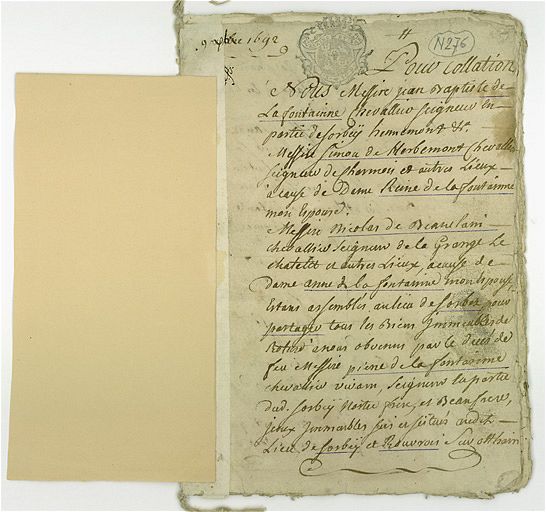 9 xbre 1692
N276
Pour collation
Nous Messire jean Baptiste de
La fontainne Chevallier Seigneur en
partie de Sorbey hennemont &c.
Messire Simon de Herbemont Chevallier
Seigneur de Charmois et autres Lieux
a cause de Dame Reine de la fontainne
mon Epouse.
Messire Nicolas de Beauclain
chevallier Seigneur de la Grange Le
chatelet et autres Lieux, a cause de
Dame anne de la fontainne mon Epouse
Estans assemblés au lieu de Sorbey pour
partager tous les Biens Immeubles de
Roture a nous obvenus par le deces de
feu Messire pierre de la fontainne
chevallier vivant, Seigneur en partie
dud. Sorbey Notre frere, et Beaufrere,
Lieu de Sorbey et Rouvrois Sur Othain